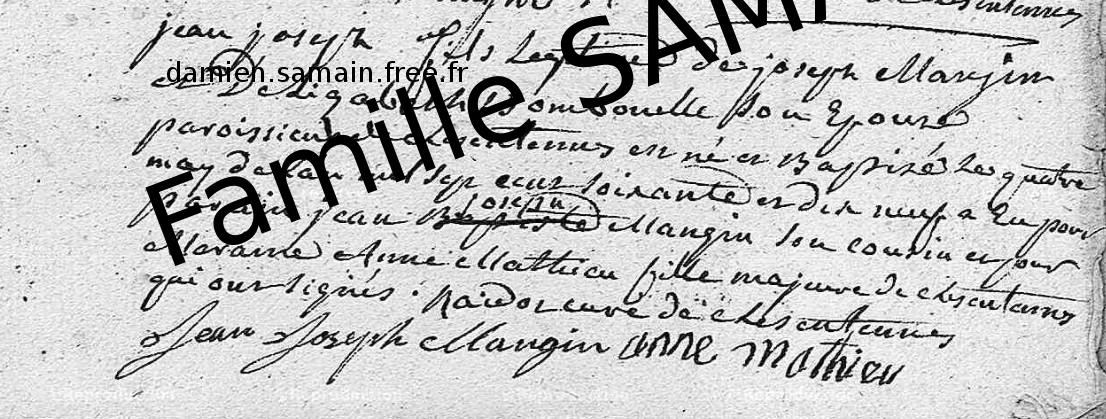 jean joseph fils legitime de joseph Mangin
damien.samain.free.fr
Famille SAMA
et D'Elizabeth Hombouelle son Epouse
paroissiens de est né et Baptisé le quatre
may de l'an mil sept cent soixante et dix neuf a Eu pour
joseph
Parain jean Baptiste Mangin son cousin et pour
Maraine Anne Mathieu fille majeure de
qui ont signés. curé de
Jean Joseph Mangin anne mathieu